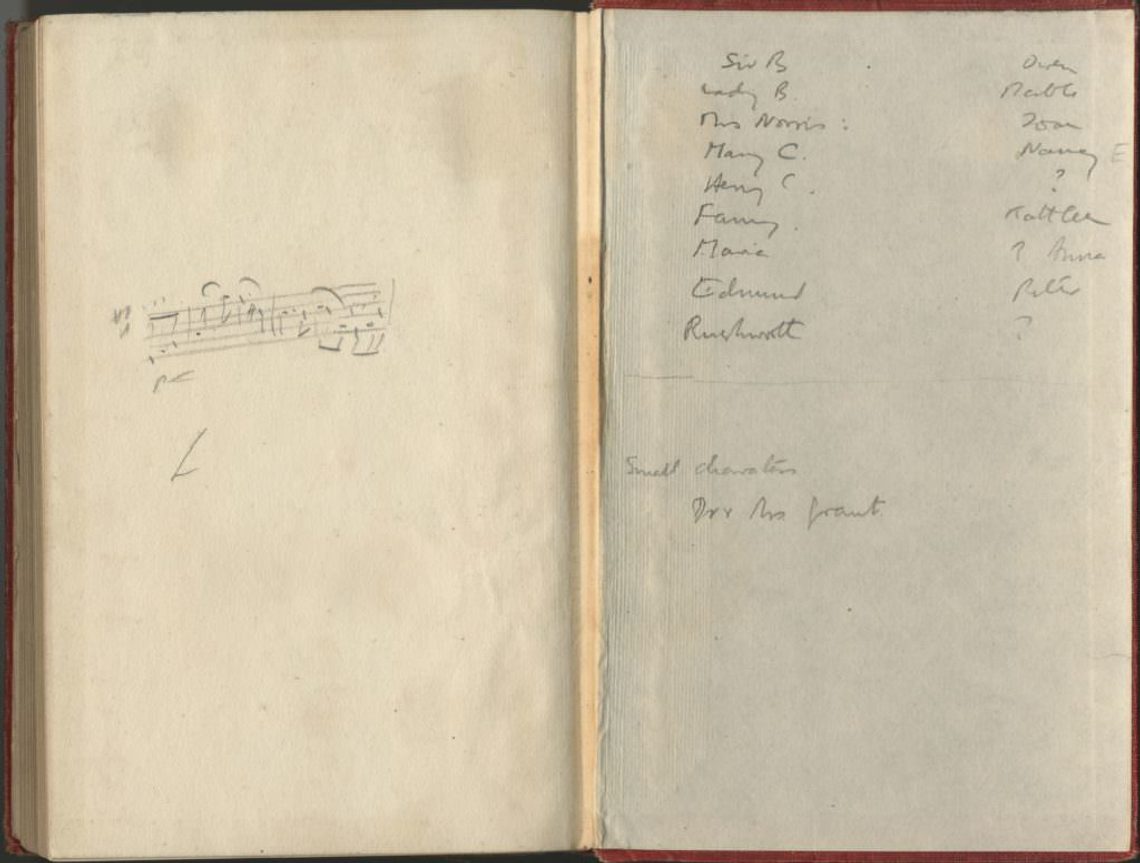 Sir B Owen
Lady B. Mable
Mrs Norris: Joan
Mary C. Nancy E
Henry C. ?
Fanny. Kathleen
Maria ? Anna
Edmund Peter
Rushworth ?
Small characters
Dr & Mrs Grant.